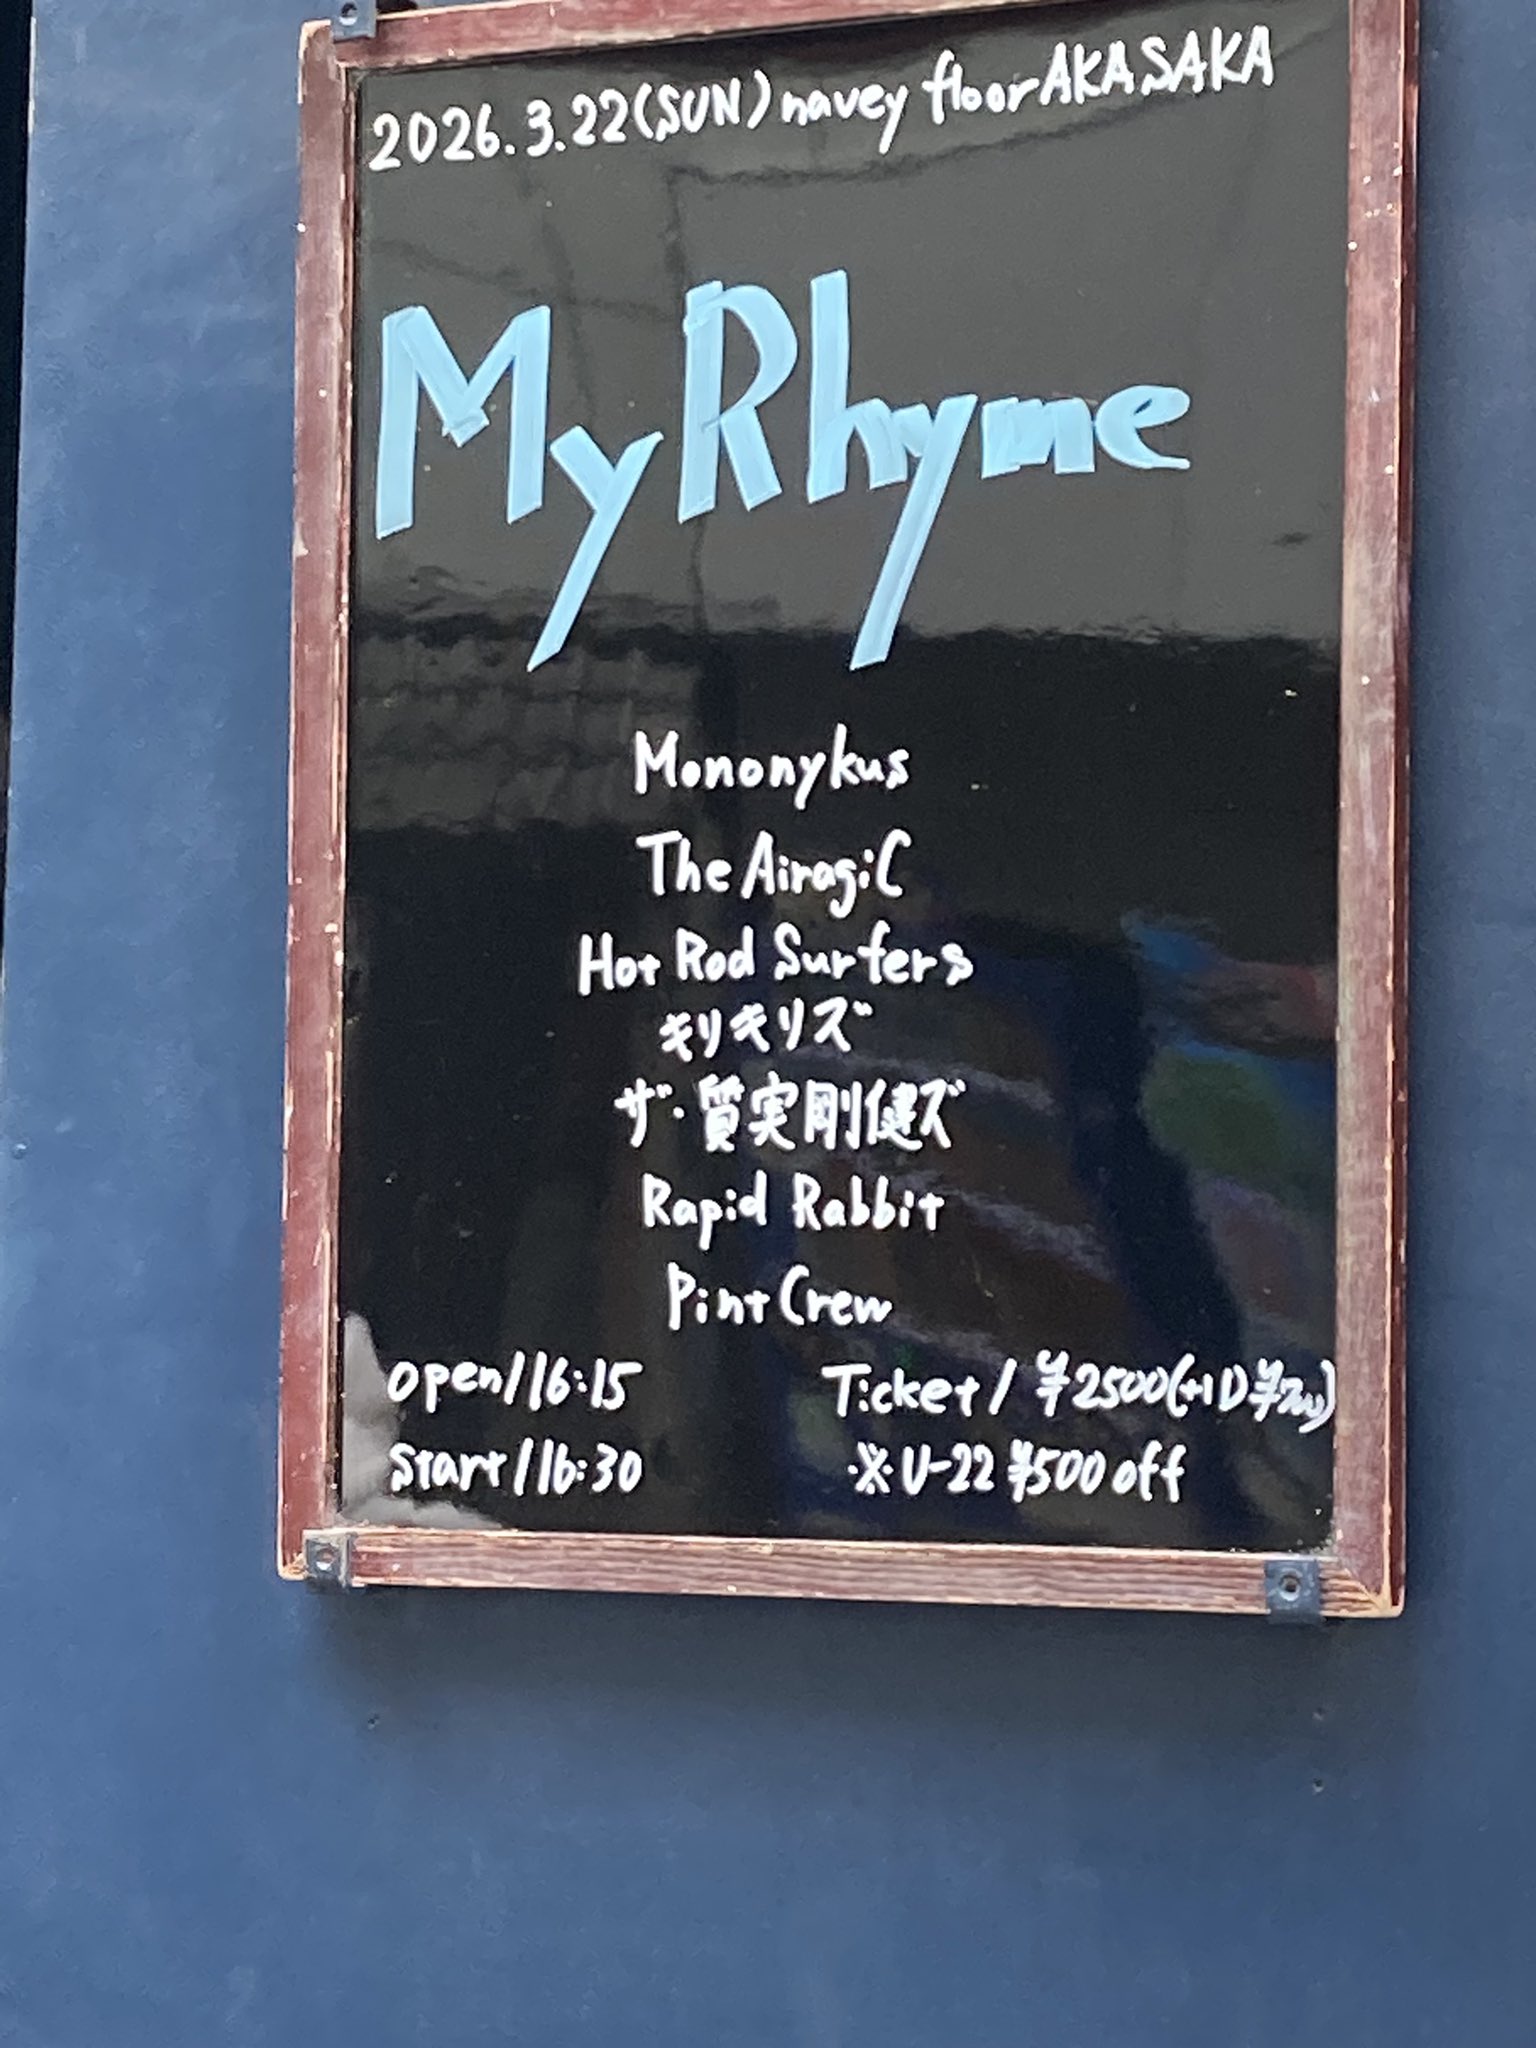 2026.3.22(SUN) navey floor AKASAKA
MyRhyme
Mononykus
The AiragiC
Hot Rod Surfers
キリキリズ
ザ・質実剛健ズ
Rapid Rabbit
Pint Crew
open/16:15
Ticket/¥2500(+1D
start/16:30
※U-22 ¥500 off